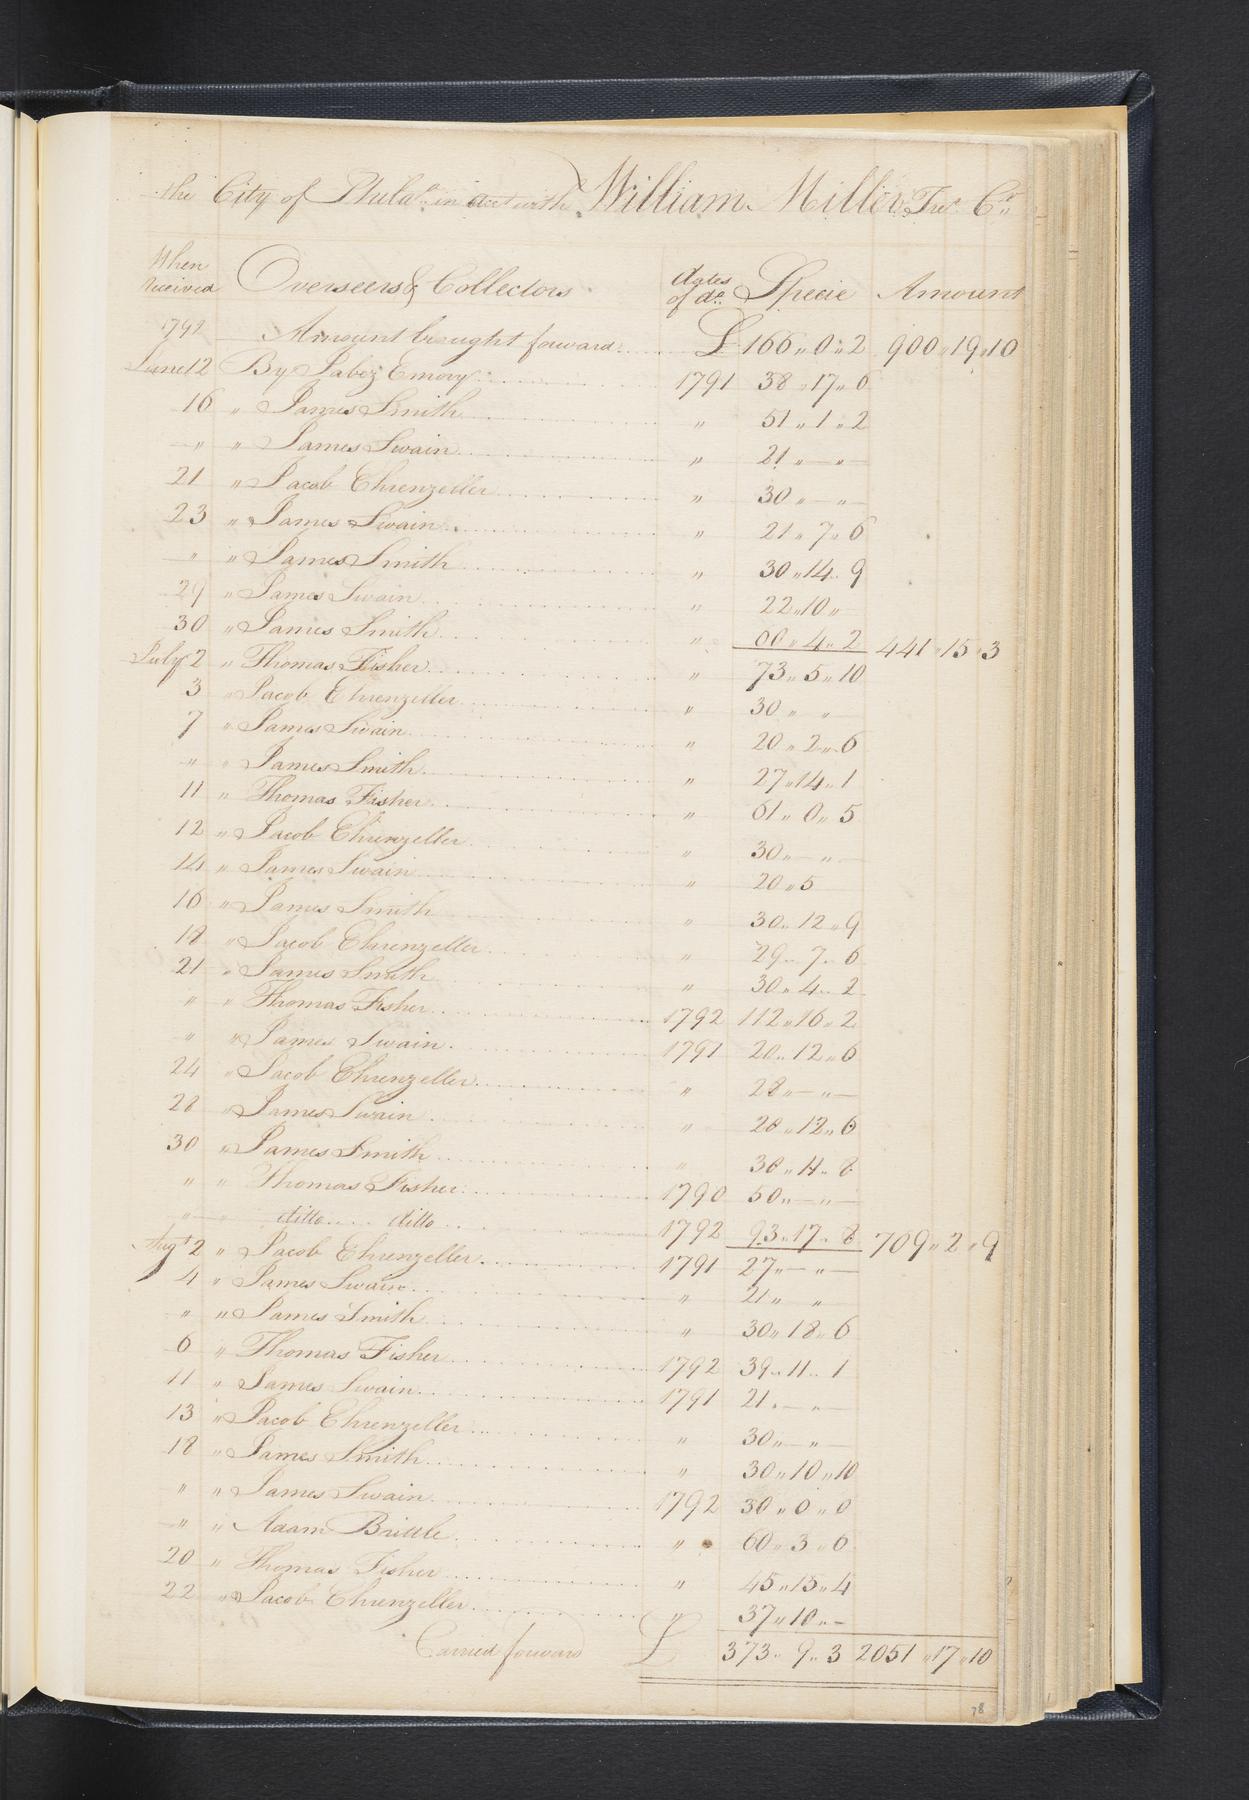 the City of Philad.ª in acct with William Miller Trr. Cr.
When received Overseers & Collectors dates of do. Specie Amount
1792 Amount brought forward £ 166 " 0 " 2 900 " 19 " 10
June 12 By Jabez Emory 1791 38 " 17 " 6
16 " James Smith " 51 " 1 " 2
" " James Swain " 21 " — " —
21 " Jacob Ehrenzeller " 30 " — " —
23 " James Swain " 21 " 7 " 6
" " James Smith " 30 " 14 " 9
29 " James Swain " 22 " 10 " —
30 " James Smith " 60 " 4 " 2 441 " 15 " 3
July 2 " Thomas Fisher " 73 " 5 " 10
3 " Jacob Ehrenzeller " 30 " "
7 " James Swain " 20 " 2 " 6
" " James Smith " 27 " 14 " 1
11 " Thomas Fisher " 61 " 0 " 5
12 " Jacob Ehrenzeller " 30 " — " —
14 " James Swain " 20 " 5
16 " James Smith " 30 " 12 " 9
18 " Jacob Ehrenzeller " 29 " 7 " 6
21 " James Smith " 30 " 4 " 2
" " Thomas Fisher 1792 112 " 16 " 2
" " James Swain 1791 20 " 12 " 6
24 " Jacob Ehrenzeller " 28 " — " —
28 " James Swain " 20 " 12 " 6
30 " James Smith " 30 " 11 " 8
" " Thomas Fisher 1790 50 " — " —
" " ditto ditto 1792 93 " 17 " 8 709 " 2 " 9
Augt 2 " Jacob Ehrenzeller 1791 27 " — " —
4 " James Swain " 21 " "
" " James Smith " 30 " 18 " 6
6 " Thomas Fisher 1792 39 " 11 " 1
11 " James Swain 1791 21 " — " —
13 " Jacob Ehrenzeller " 30 " — " —
18 " James Smith " 30 " 10 " 10
" " James Swain 1792 30 " 0 " 0
" " Adam Brittle " 60 " 3 " 6
20 " Thomas Fisher " 45 " 15 " 4
22 " Jacob Ehrenzeller " 37 " 10 " —
Carried forward £ 373 " 9 " 3 2051 " 17 " 10
78